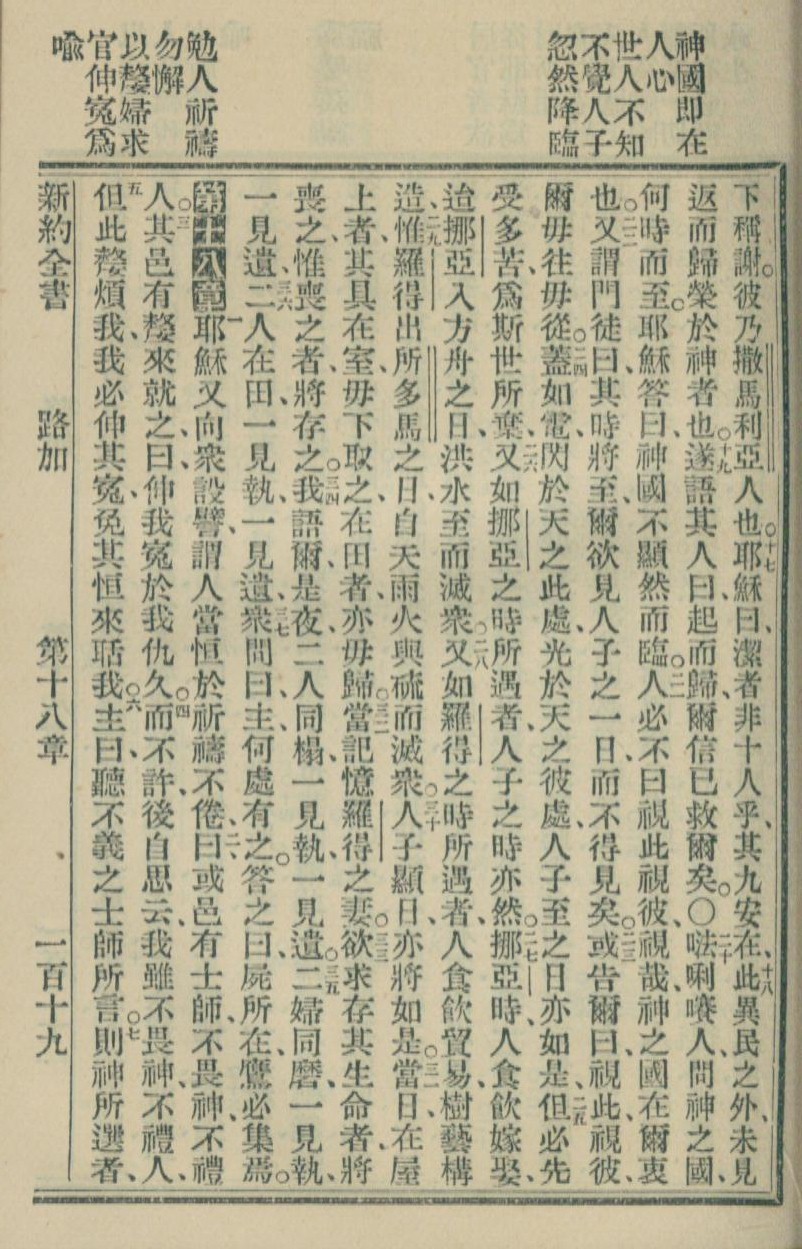 神國即在
人心
世人不知
不覺人子
忽然降臨
勉人祈禱
勿懈
以嫠婦求
官伸寃爲
喩
下稱謝。彼乃撒馬利亞人也。十七耶穌曰、潔者非十人乎、其九安在、十八此異民之外、未見
返而歸榮於神者也。十九遂語其人曰、起而歸、爾信已救爾矣。〇二十𠵽唎㘔人、問神之國、
何時而至。耶穌答曰、神國不顯然而臨。二一人必不曰視此視彼、視哉、神之國在爾衷
也。二二又謂門徒曰、其時將至、爾欲見人子之一日、而不得見矣。二三或告爾曰、視此、視彼、
爾毋往毋從。二四蓋如電、閃於天之此處、光於天之彼處、人子至之日亦如是。二五但必先
受多苦、爲斯世所棄、二六又如挪亞之時所遇者、人子之時亦然。二七挪亞時、人食飲嫁娶、
迨挪亞入方舟之日、洪水至而滅衆。二八又如羅得之時所遇者、人食飲貿易、樹藝構
造、二九惟羅得出所多馬之日、自天雨火與硫而滅衆。三十人子顯日、亦將如是。三一當日、在屋
上者、其具在室、毋下取之、在田者、亦毋歸。三二當記憶羅得之妻。三三欲求存其生命者、將
喪之、惟喪之者、將存之。三四我語爾、是夜、二人同榻、一見執、一見遺。三五二婦同磨、一見執、
一見遺、三六二人在田、一見執、一見遺、三七衆問曰、主、何處有之。答之曰、屍所在、鷹必集焉。
第十八章一耶穌又向衆設譬、謂人當恒於祈禱不倦、二曰、或邑有士師、不畏神、不禮
人。三其邑有嫠來就之、曰、伸我寃於我仇。四久而不許、後自思云、我雖不畏神、不禮人、
五但此嫠煩我、我必伸其寃、免其恒來聒我。六主曰、聽不義之士師所言。七則神所選者、
新約全書 路加 第十八章 一百十九